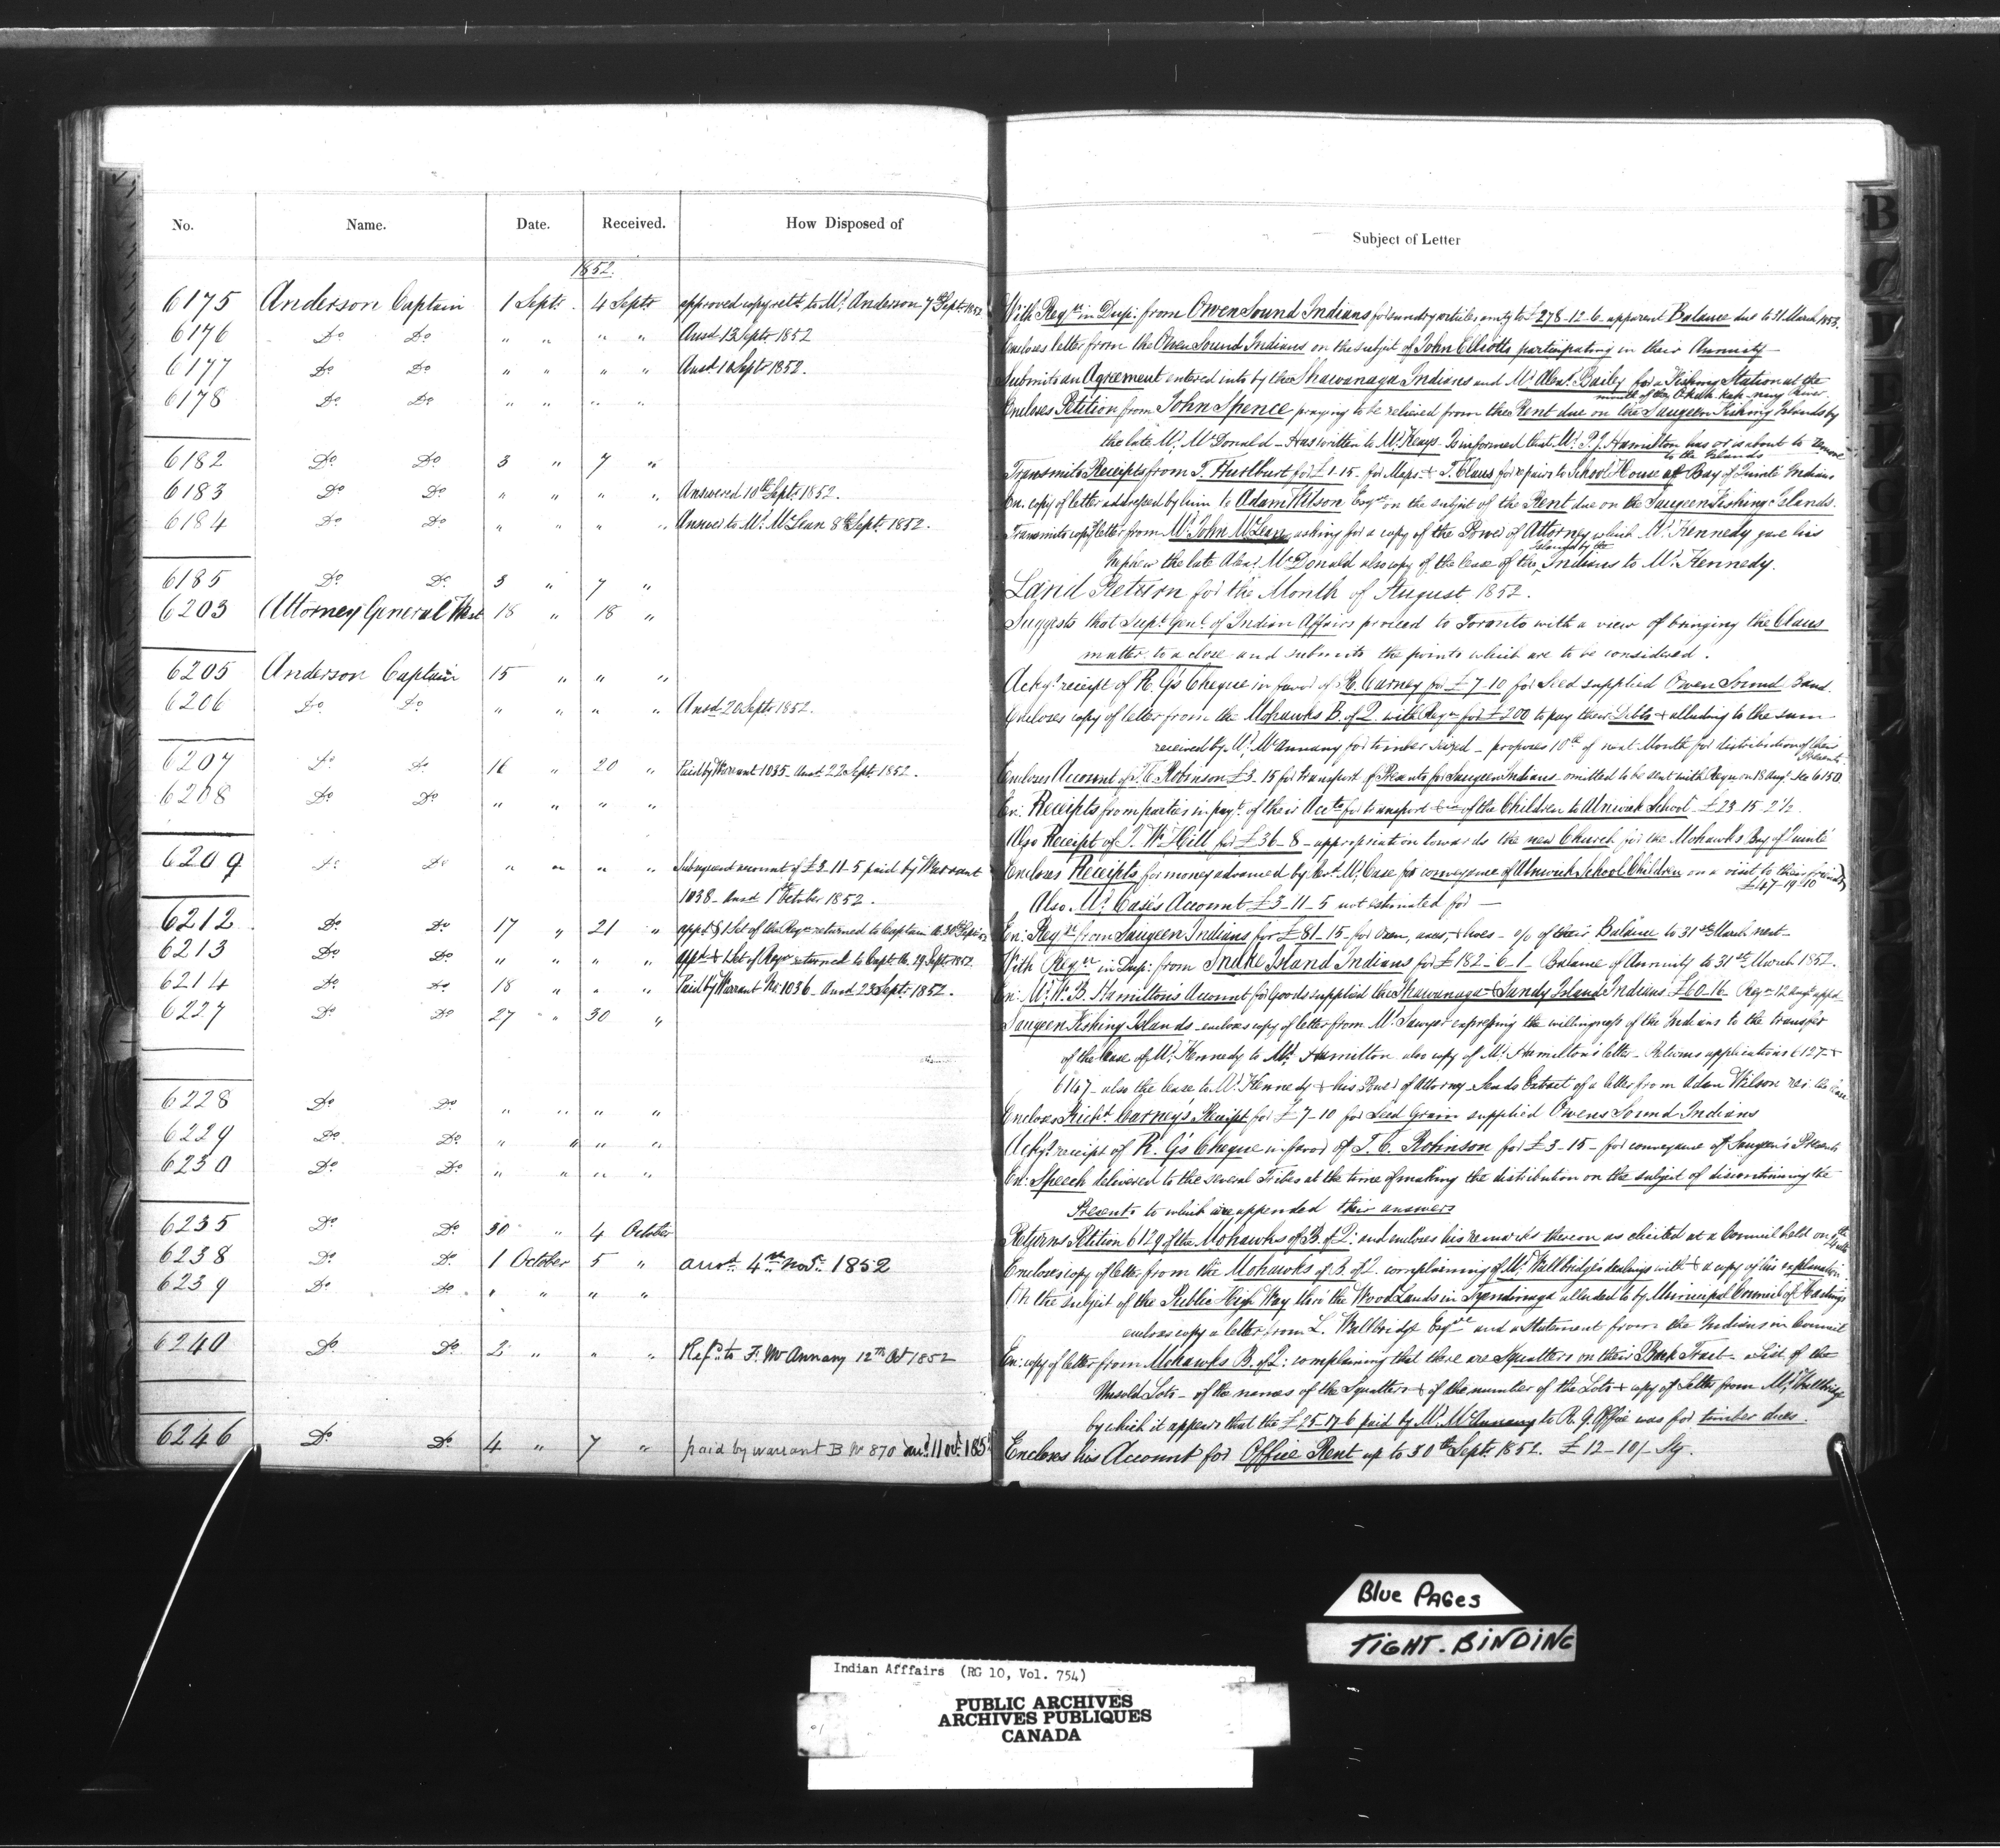 No. Name. Date. Received. How Disposed of
1852.
6175 Anderson Captain 1 Septr. 4 Septr approved copy retd to Mr. Anderson 7th Septr. 1852
6176 Do Do " " " " Ansd 13 Septr 1852
6177 Do Do " " " " Ansd 10 Septr 1852.
6178 Do Do " " " "
6182 Do Do 3 " 7 "
6183 Do Do " " " " Answered 10th Septr. 1852.
6184 Do Do " " " " Answer to Mr. McLean 8th Septr. 1852.
6185 Do Do 3 " 7 "
6203 Attorney General West 18 " 18 "
6205 Anderson Captain 15 " " "
6206 Do Do " " " " Ansd 20 Septr. 1852.
6207 Do Do 16 " 20 " Paid by Warrant 1035. Ansd. 22 Septr. 1852.
6208 Do Do " " " "
6209 Do Do " " " " Subsequent account of £3-11-5 paid by Warrant
1038. Ansd 1st October 1852.
6212 Do Do 17 " 21 " appd & 1 Set of the Reqn returned to Captain A. 30th Septr
6213 Do Do " " " " appd & 1 Set of Reqn returned to Capt. A. 29 Septr. 1852.
6214 Do Do 18 " " " Paid by Warrant No. 1036. Ansd 23 Septr. 1852.
6227 Do Do 27 " 30 "
6228 Do Do " " " "
6229 Do Do " " " "
6230 Do Do " " " "
6235 Do Do 30 " 4 October
6238 Do Do 1 October 5 " ansd. 4th Novr. 1852
6239 Do Do " " " "
6240 Do Do 2 " " " Refd. to F. McAnnany 12th Oct 1852
6246 Do Do 4 " 7 " paid by warrant B No 870 ansd. 11 Novr. 185
Subject of Letter
With Reqn in Dup: from Owen Sound Indians for sundry articles amtg to £278-12-6 apparent Balance due to 31 March 1853.
Encloses letter from the Owen Sound Indians on the subject of John Elliotts participating in their Annuity
Submits an Agreement entered into by the Shawanaga Indians and Mr. Alexr. Bailey for a Fishing Station at the
mouth of the River
Encloses Petition from John Spence praying to be relieved from the Rent due on the Saugeen Fishing Islands by
the late Mr. McDonald - Has written to Mr. Keays. Is informed that Mr. P. J. Hamilton has or is about to remove
to the Islands
Transmits Receipts from T. Hurlburt for £1.15. for Maps & T. Claus for repairs to School House at Bay of Quinté Indians
En. copy of letter addressed by him to Adam Wilson Esqre on the subject of the Rent due on the Saugeen Fishing Islands.
Transmits copy letter from Mr. John McLean asking for a copy of the Power of Attorney which Mr. Kennedy gave his
Nephew the late Alexr. McDonald also copy of the lease of the Islands by the Indians to Mr. Kennedy.
Land Return for the Month of August 1852.
Suggests that Supt. Genl. of Indian Affairs proceed to Toronto with a view of bringing the Claus
matter to a close and submits the points which are to be considered.
Ackgs receipt of R. G's Cheque in favor of R. Carney for £7-10 for Seed supplied Owen Sound Band.
Encloses copy of letter from the Mohawks B. of Q. with Reqn for £200 to pay their Debts & alluding to the sum
received by Mr. McAnnany for timber seized - proposes 10th of next Month for distribution of their
Presents
Encloses Account of T. C. Robinson £3.15 for transport of Presents for Saugeen Indians omitted to be sent with Reqn on 18 Augt. See 6150
En: Receipts from parties in payt. of their Accts for transport of the Children to Alnwick School £23-15-2½
Also Receipt of T. W. Hill for £36-8 - appropriation towards the new Church for the Mohawks Bay of Quinté
Encloses Receipts for money advanced by Revd. W. Case for conveyance of Alnwick School Children on a visit to their friends
£47-19-10
Also Mr. Case's Account £3-11-5 not estimated for
En: Reqn from Saugeen Indians for £81-15 - for Oxen, axes, & hoes - o/c of their Balance to 31st March next
With Reqn in Dup: from Snake Island Indians for £182-6-1 Balance of Annuity to 31st March 1852.
En: Mr. W. B. Hamilton's Account for Goods supplied the Shawanaga & Sandy Island Indians £60-16 Reqn 12 Augt appd
Saugeen Fishing Islands - encloses copy of letter from Mr. Sawyer expressing the willingness of the Indians to the transfer
of the lease of Mr. Kennedy to Mr. Hamilton also copy of Mr. Hamilton's letter - Returns applications 6127 &
6147 - also the lease to Mr. Kennedy & his Power of Attorney - Sends Extract of a letter from Adam Wilson re: the lease
Encloses Richd. Carney's Receipt for £7-10 for Seed Grain supplied Owens Sound Indians
Ackgs receipt of R. G's Cheque in favor of T. C. Robinson for £3-15 - for conveyance of Saugeen's Presents
En: Speech delivered to the several Tribes at the time of making the distribution on the subject of discontinuing the
Presents to which are appended their answers
Returns Petition 6129 of the Mohawks of B. of Q: and encloses his remarks thereon as elicited at a Council held on
Encloses copy of letter from the Mohawks of B. of Q. complaining of Mr. Wallbridge's dealings with & a copy of his explanation
On the subject of the Public High Way thro' the Wood Lands in Tyendinaga alluded to by Municipal Council of Hastings
encloses copy a letter from L. Wallbridge Esqre and a Statement from the Indians in Council
En: copy of letter from Mohawks B. of Q: complaining that there are Squatters on their Back Tract - a List of the
Unsold Lots - of the names of the Squatters & of the number of the Lots & copy of Letter from Mr. Wallbridge
by which it appears that the £25-17-6 paid by Mr. McAnnany to R. G. Office was for timber dues.
Encloses his Account for Office Rent up to 30th Septr. 1852. £12-10/- Stg.
B
Blue Pages
TIGHT-BINDING
Indian Afffairs (RG 10, Vol. 754)
PUBLIC ARCHIVES
ARCHIVES PUBLIQUES
CANADA